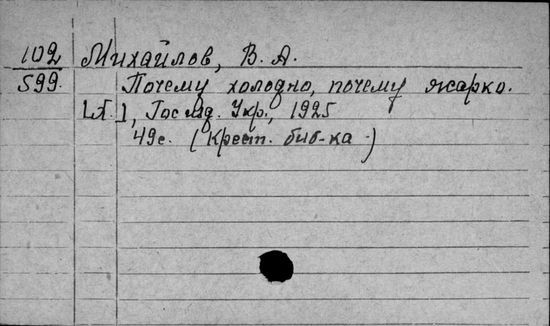 102 Михайлов, В. А.
599. Почему холодно, почему жарко.
[Х.], Госизд. Укр., 1925
49с. (Крест. биб-ка)